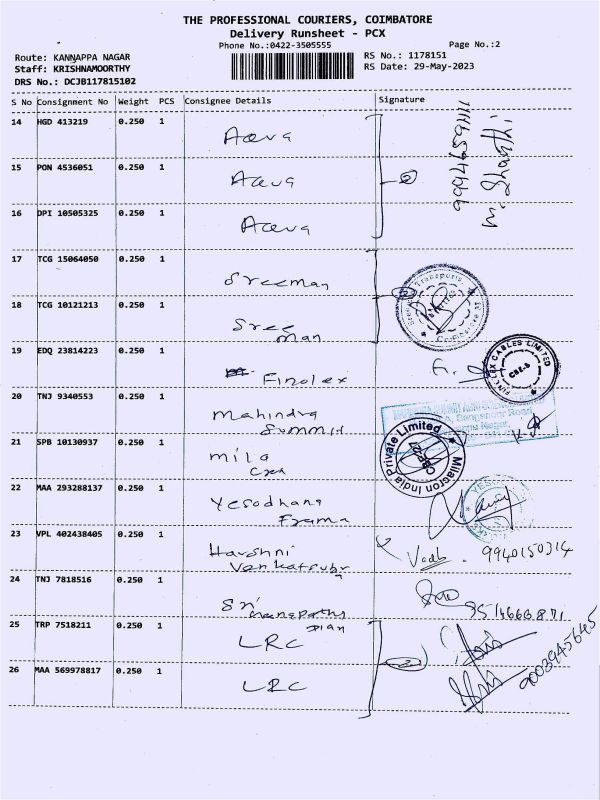 THE PROFESSIONAL COURIERS, COIMBATORE
Delivery Runsheet - PCX
Phone No.:0422-3505555 Page No.:2
Route: KANNAPPA NAGAR RS No.: 1178151
Staff: KRISHNAMOORTHY RS Date: 29-May-2023
DRS No.: DCJB117815102
S No Consignment No Weight PCS Consignee Details Signature
14 HGD 413219 0.250 1 Aava
15 PON 4536051 0.250 1 Aava
16 DPI 10505325 0.250 1 Aava
17 TCG 15064050 0.250 1 Sreeman
18 TCG 10121213 0.250 1 Sree
man
19 EDQ 23814223 0.250 1 Finolex
FINOLEX CABLES LIMITED
20 TNJ 9340553 0.250 1 Mahindra
Summit
21 SPB 10130937 0.250 1 Mila
Milacron India Private Limited
22 MAA 293288137 0.250 1 Yesodhana
Frama
23 VPL 402438405 0.250 1 Harshni
9940150314
24 TNJ 7818516 0.250 1 Sri
25 TRP 7518211 0.250 1 LRC
26 MAA 569978817 0.250 1 LRC
9003945645